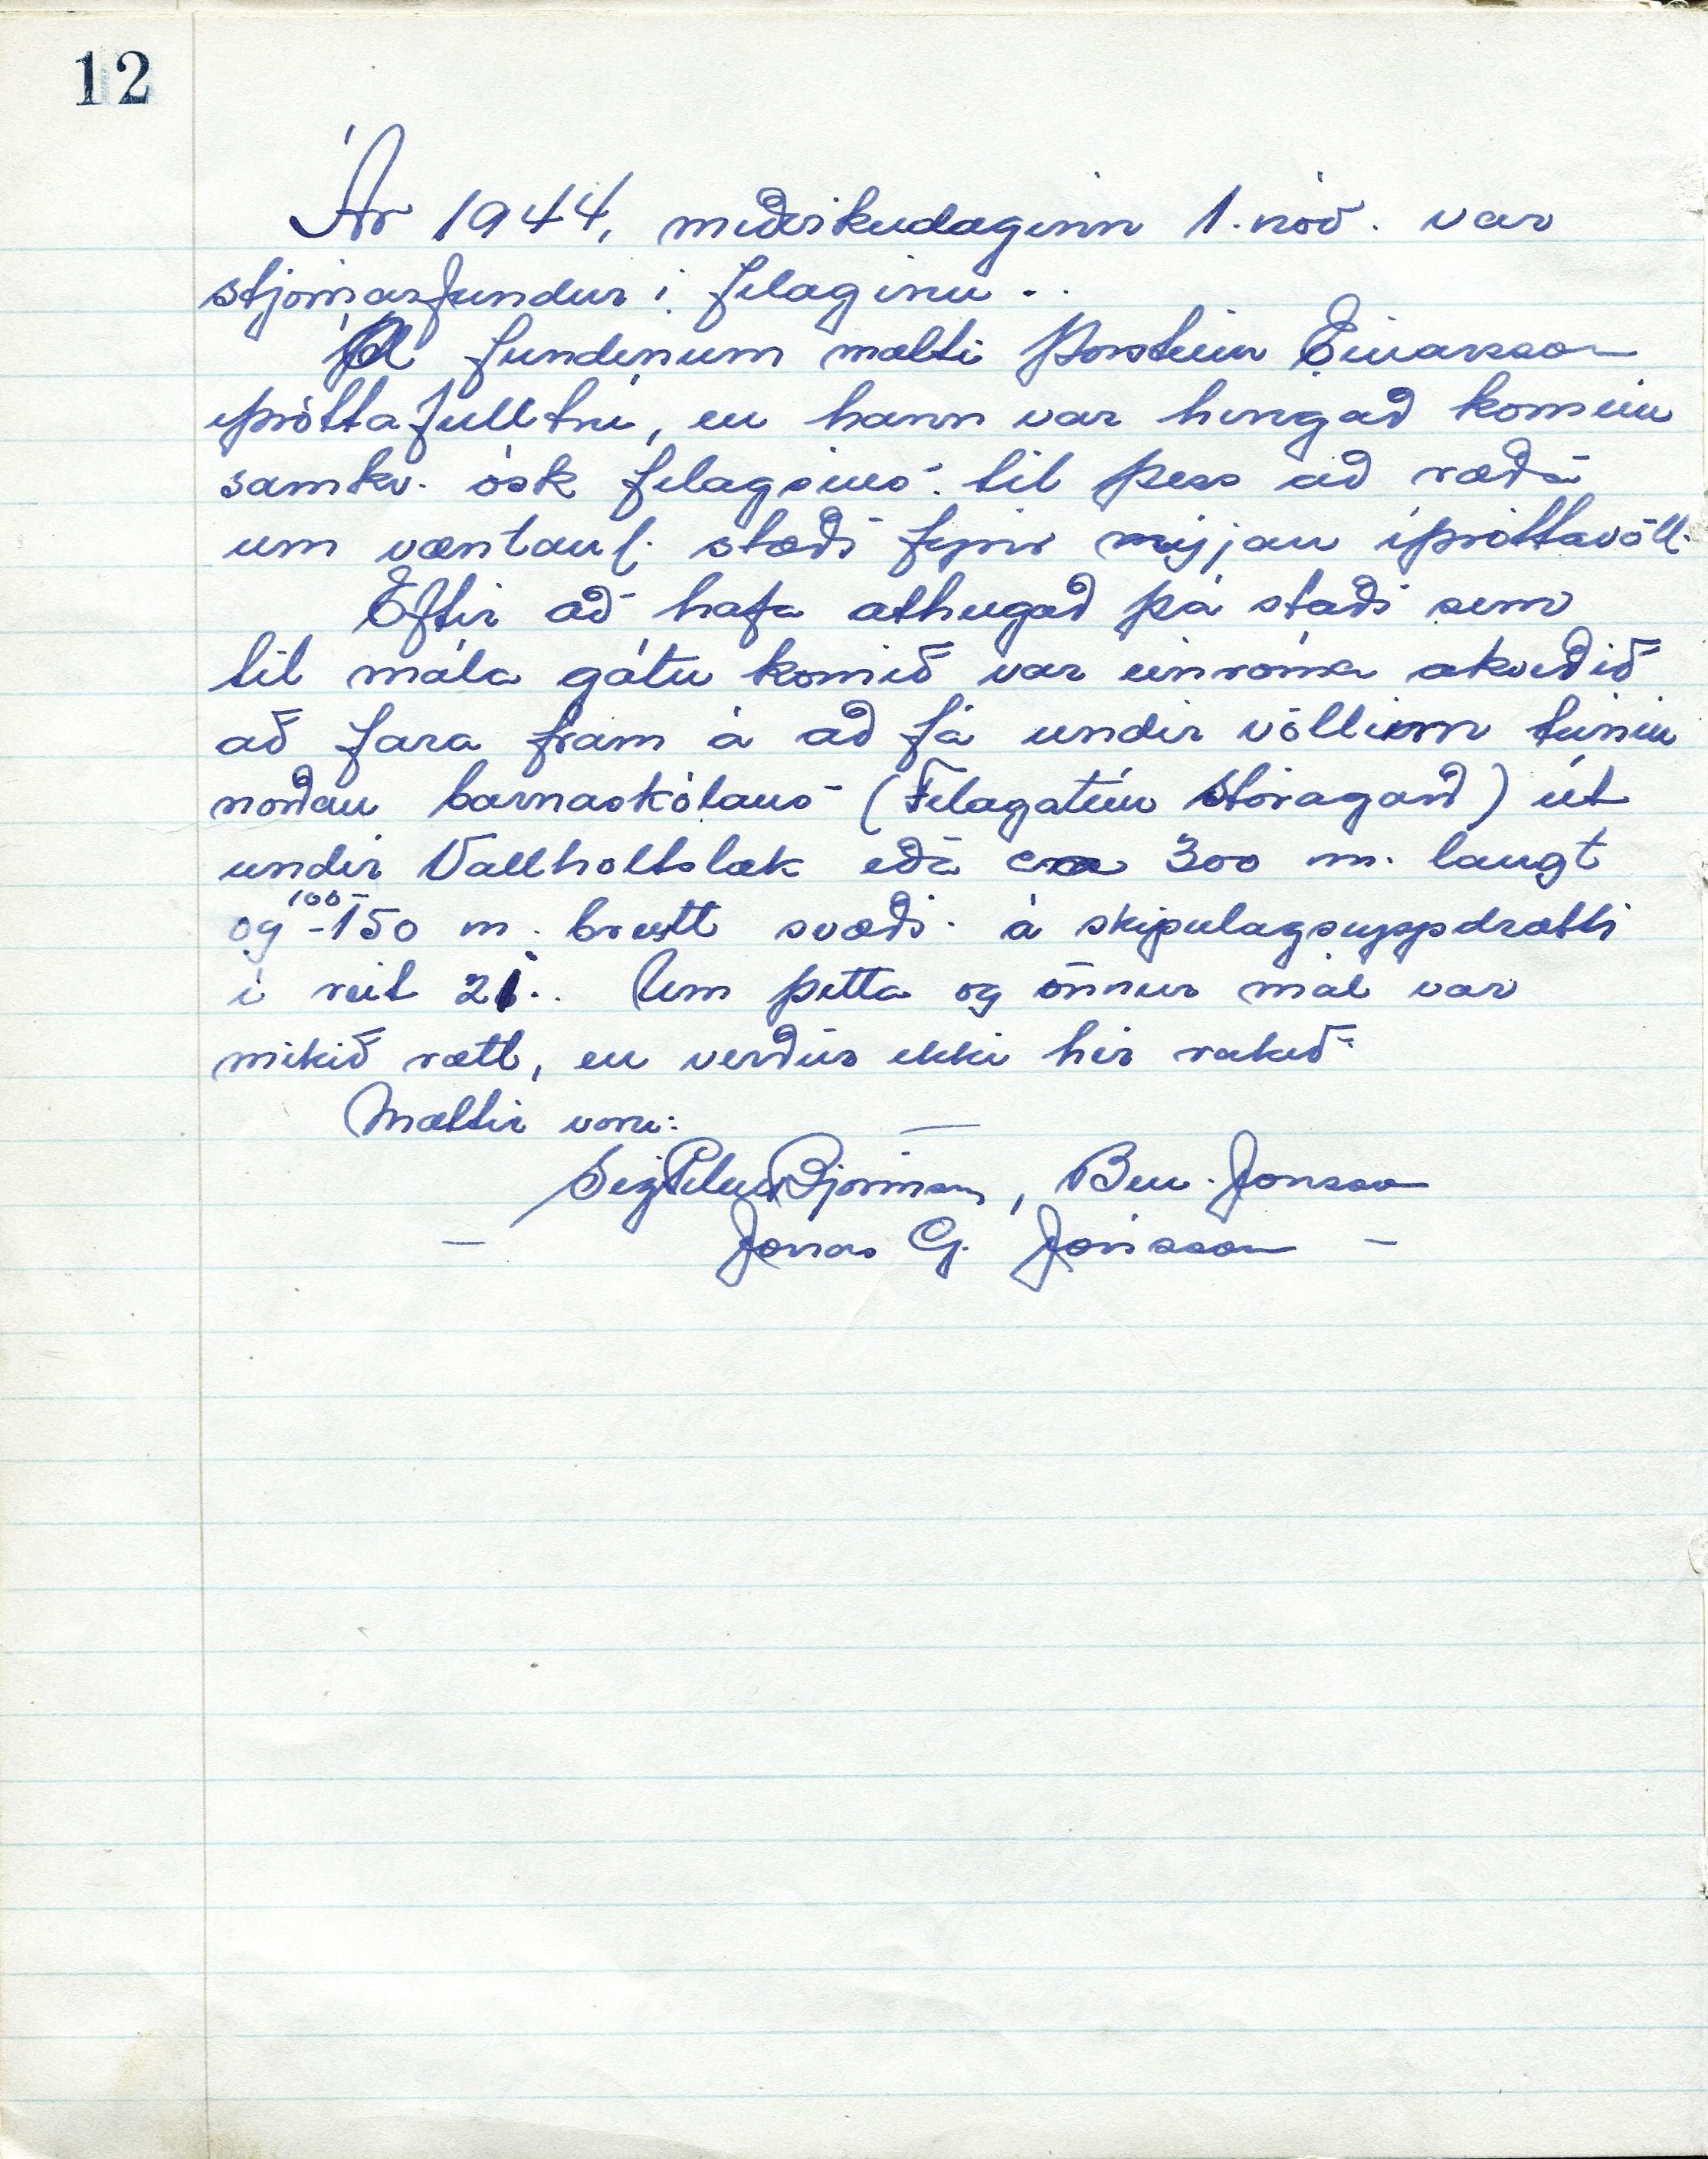 12
Ár 1944, miðvikudaginn 1. nóv. var
stjórnarfundur í félaginu.
Á fundinum mætti Þorsteinn Einarsson
íþróttafulltrúi, en hann var hingað kominn
samkv. ósk félagsins til þess að ræða
um væntanl. stæði fyrir nýjan íþróttavöll.
Eftir að hafa athugað þá staði sem
til mála gátu komið var einróma ákveðið
að fara fram á að fá undir völlinn túnin
norðan barnaskólans (Félagatún Stóragarð) út
undir Vallholtslæk eða ca 300 m. langt
og 100-150 m. breitt svæði á skipulagsuppdrætti
í reit 21. Um þetta og önnur mál var
mikið rætt, en verður ekki hér rakið.
Mættir voru:
Sig Pétur Björnsson, Ben. Jónsson
Jónas G. Jónsson